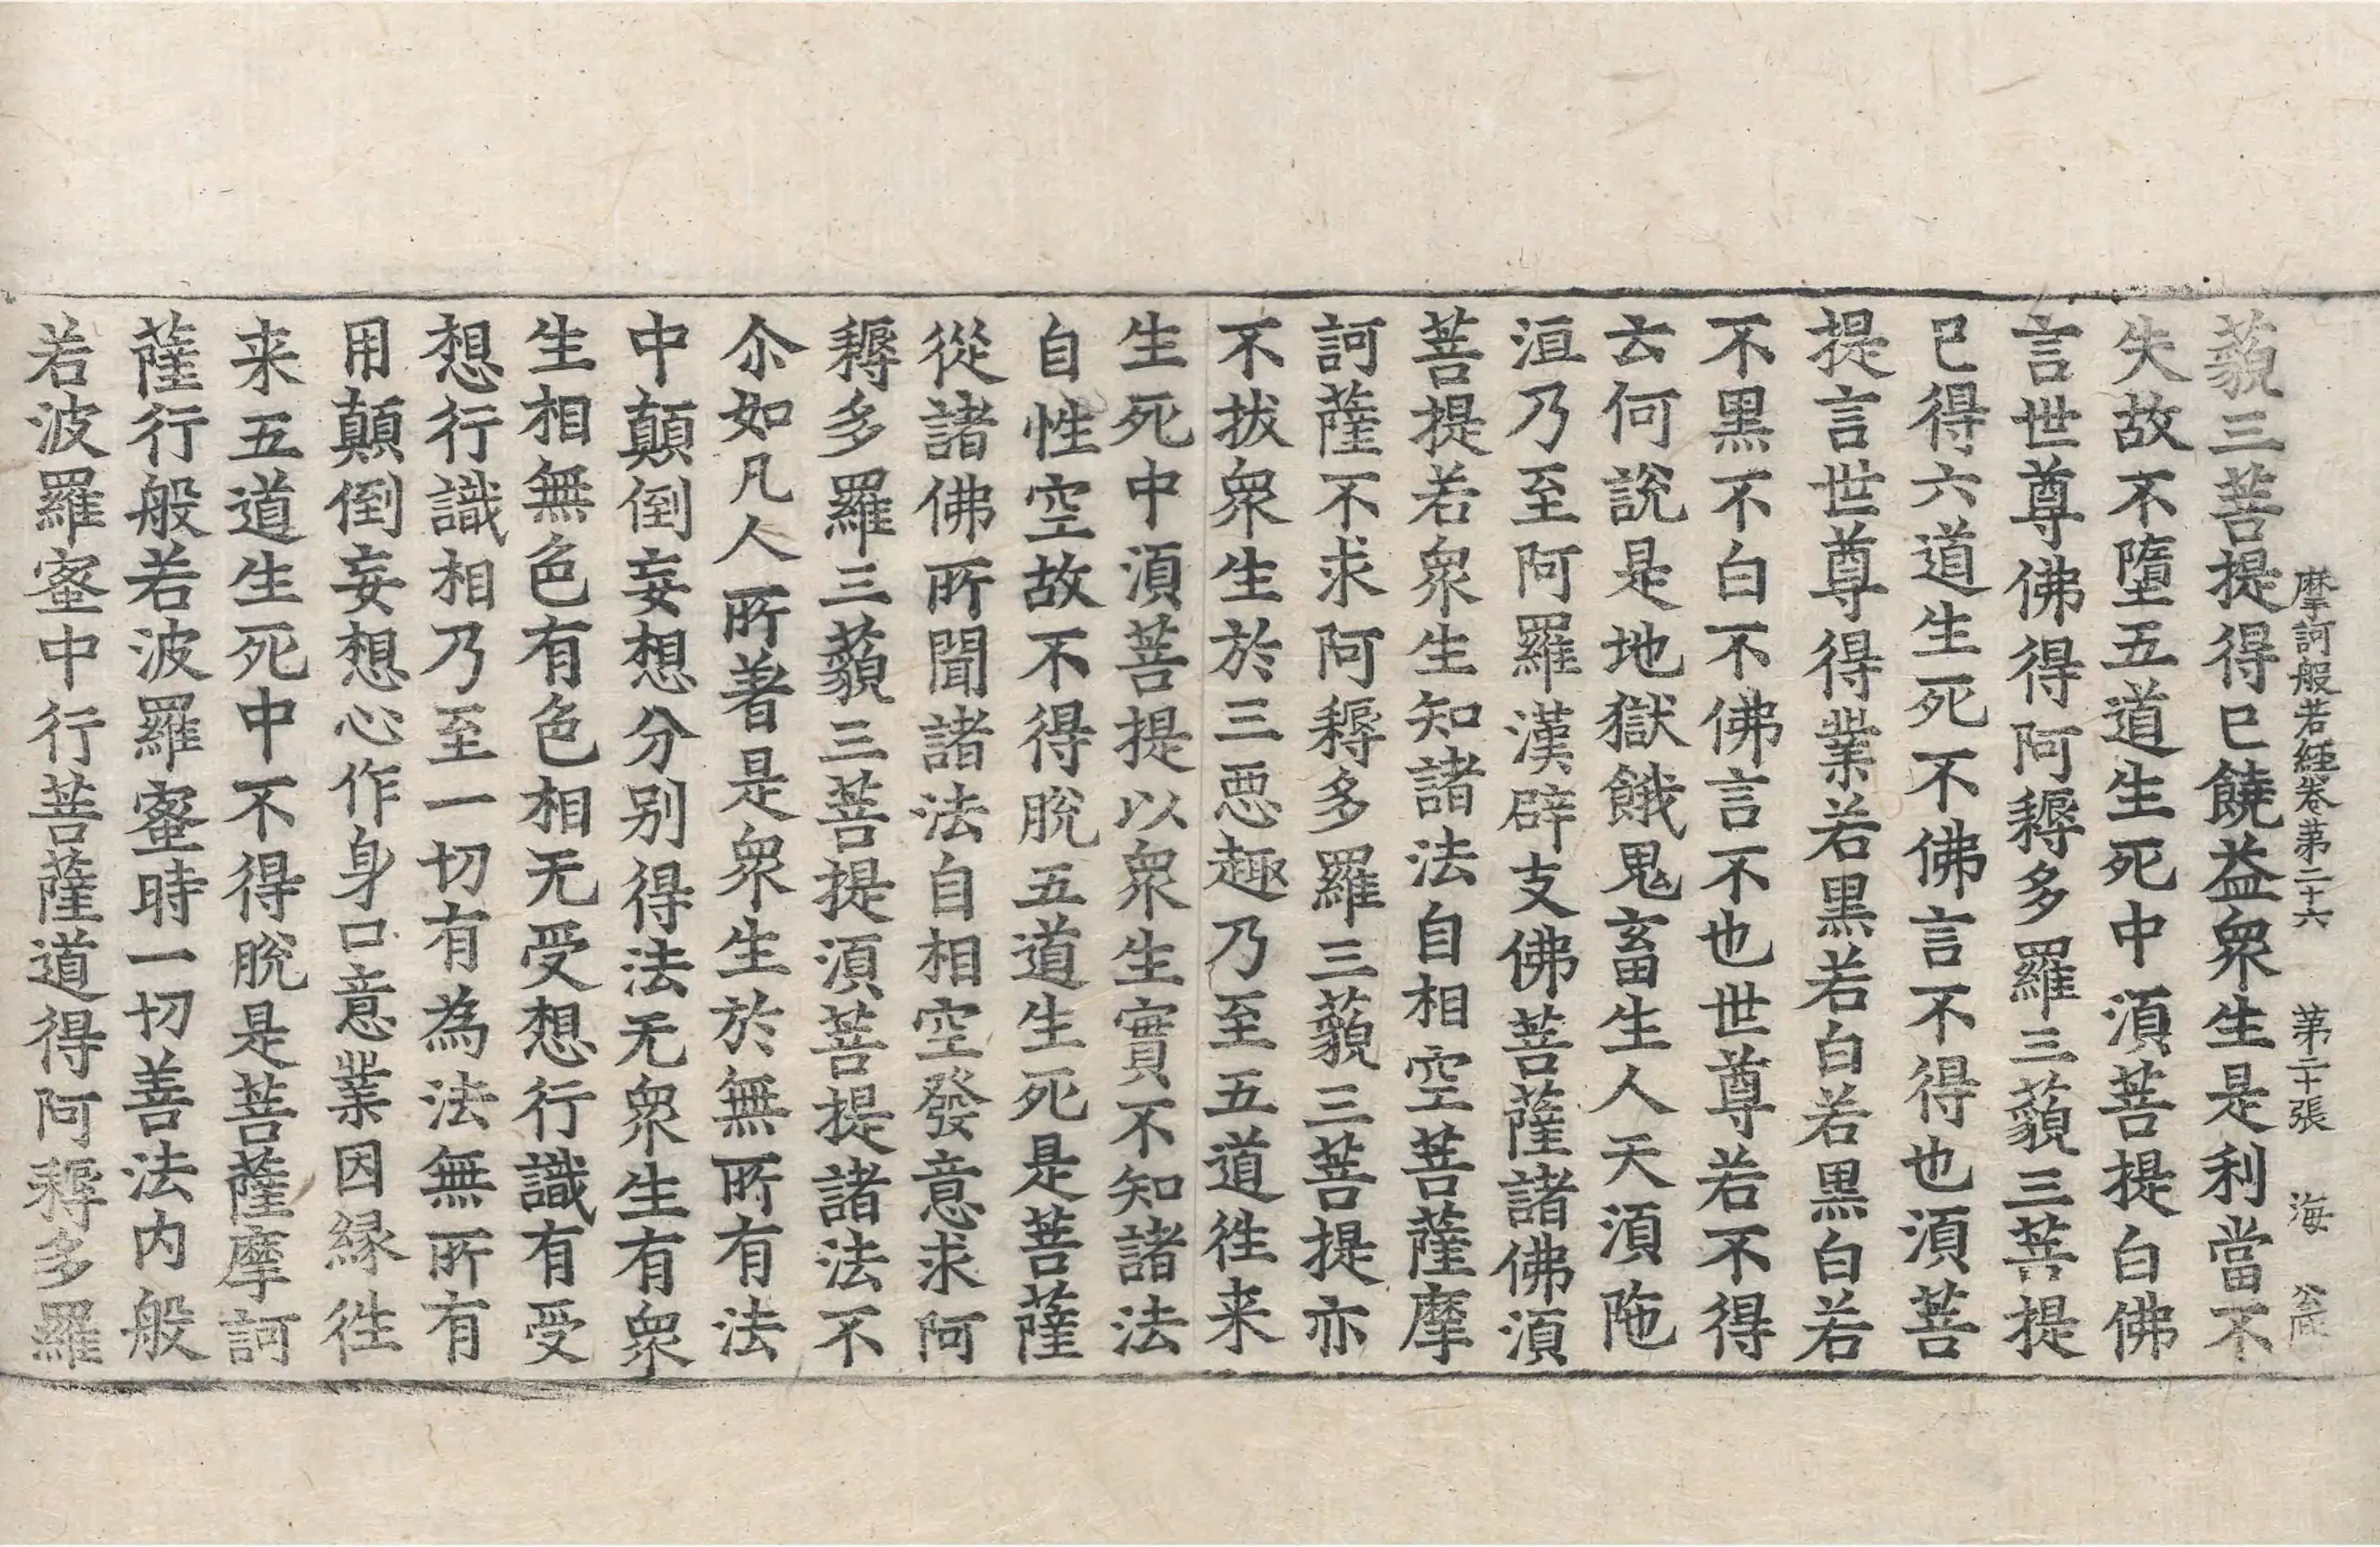 摩訶般若經卷第二十六　第二十張　海
藐三菩提得已饒益衆生是利當不
失故不墮五道生死中湏菩提白佛
言世尊佛得阿耨多羅三藐三菩提
已得六道生死不佛言不得也湏菩
提言世尊得業若黒若白若黒白若
不黒不白不佛言不也世尊若不得
云何說是地獄餓鬼畜生人天湏陁
洹乃至阿羅漢辟支佛菩薩諸佛湏
菩提若衆生知諸法自相空菩薩摩
訶薩不求阿耨多羅三藐三菩提亦
不拔衆生於三惡趣乃至五道徃来
生死中湏菩提以衆生實不知諸法
自性空故不得脫五道生死是菩薩
從諸佛所聞諸法自相空發意求阿
耨多羅三藐三菩提湏菩提諸法不
尒如凡人所著是衆生於無所有法
中顛倒妄想分别得法无衆生有衆
生相無色有色相无受想行識有受
想行識相乃至一切有為法無所有
用顛倒妄想心作身口意業因縁徃
来五道生死中不得脫是菩薩摩訶
薩行般若波羅蜜時一切善法内般
若波羅蜜中行菩薩道得阿耨多羅